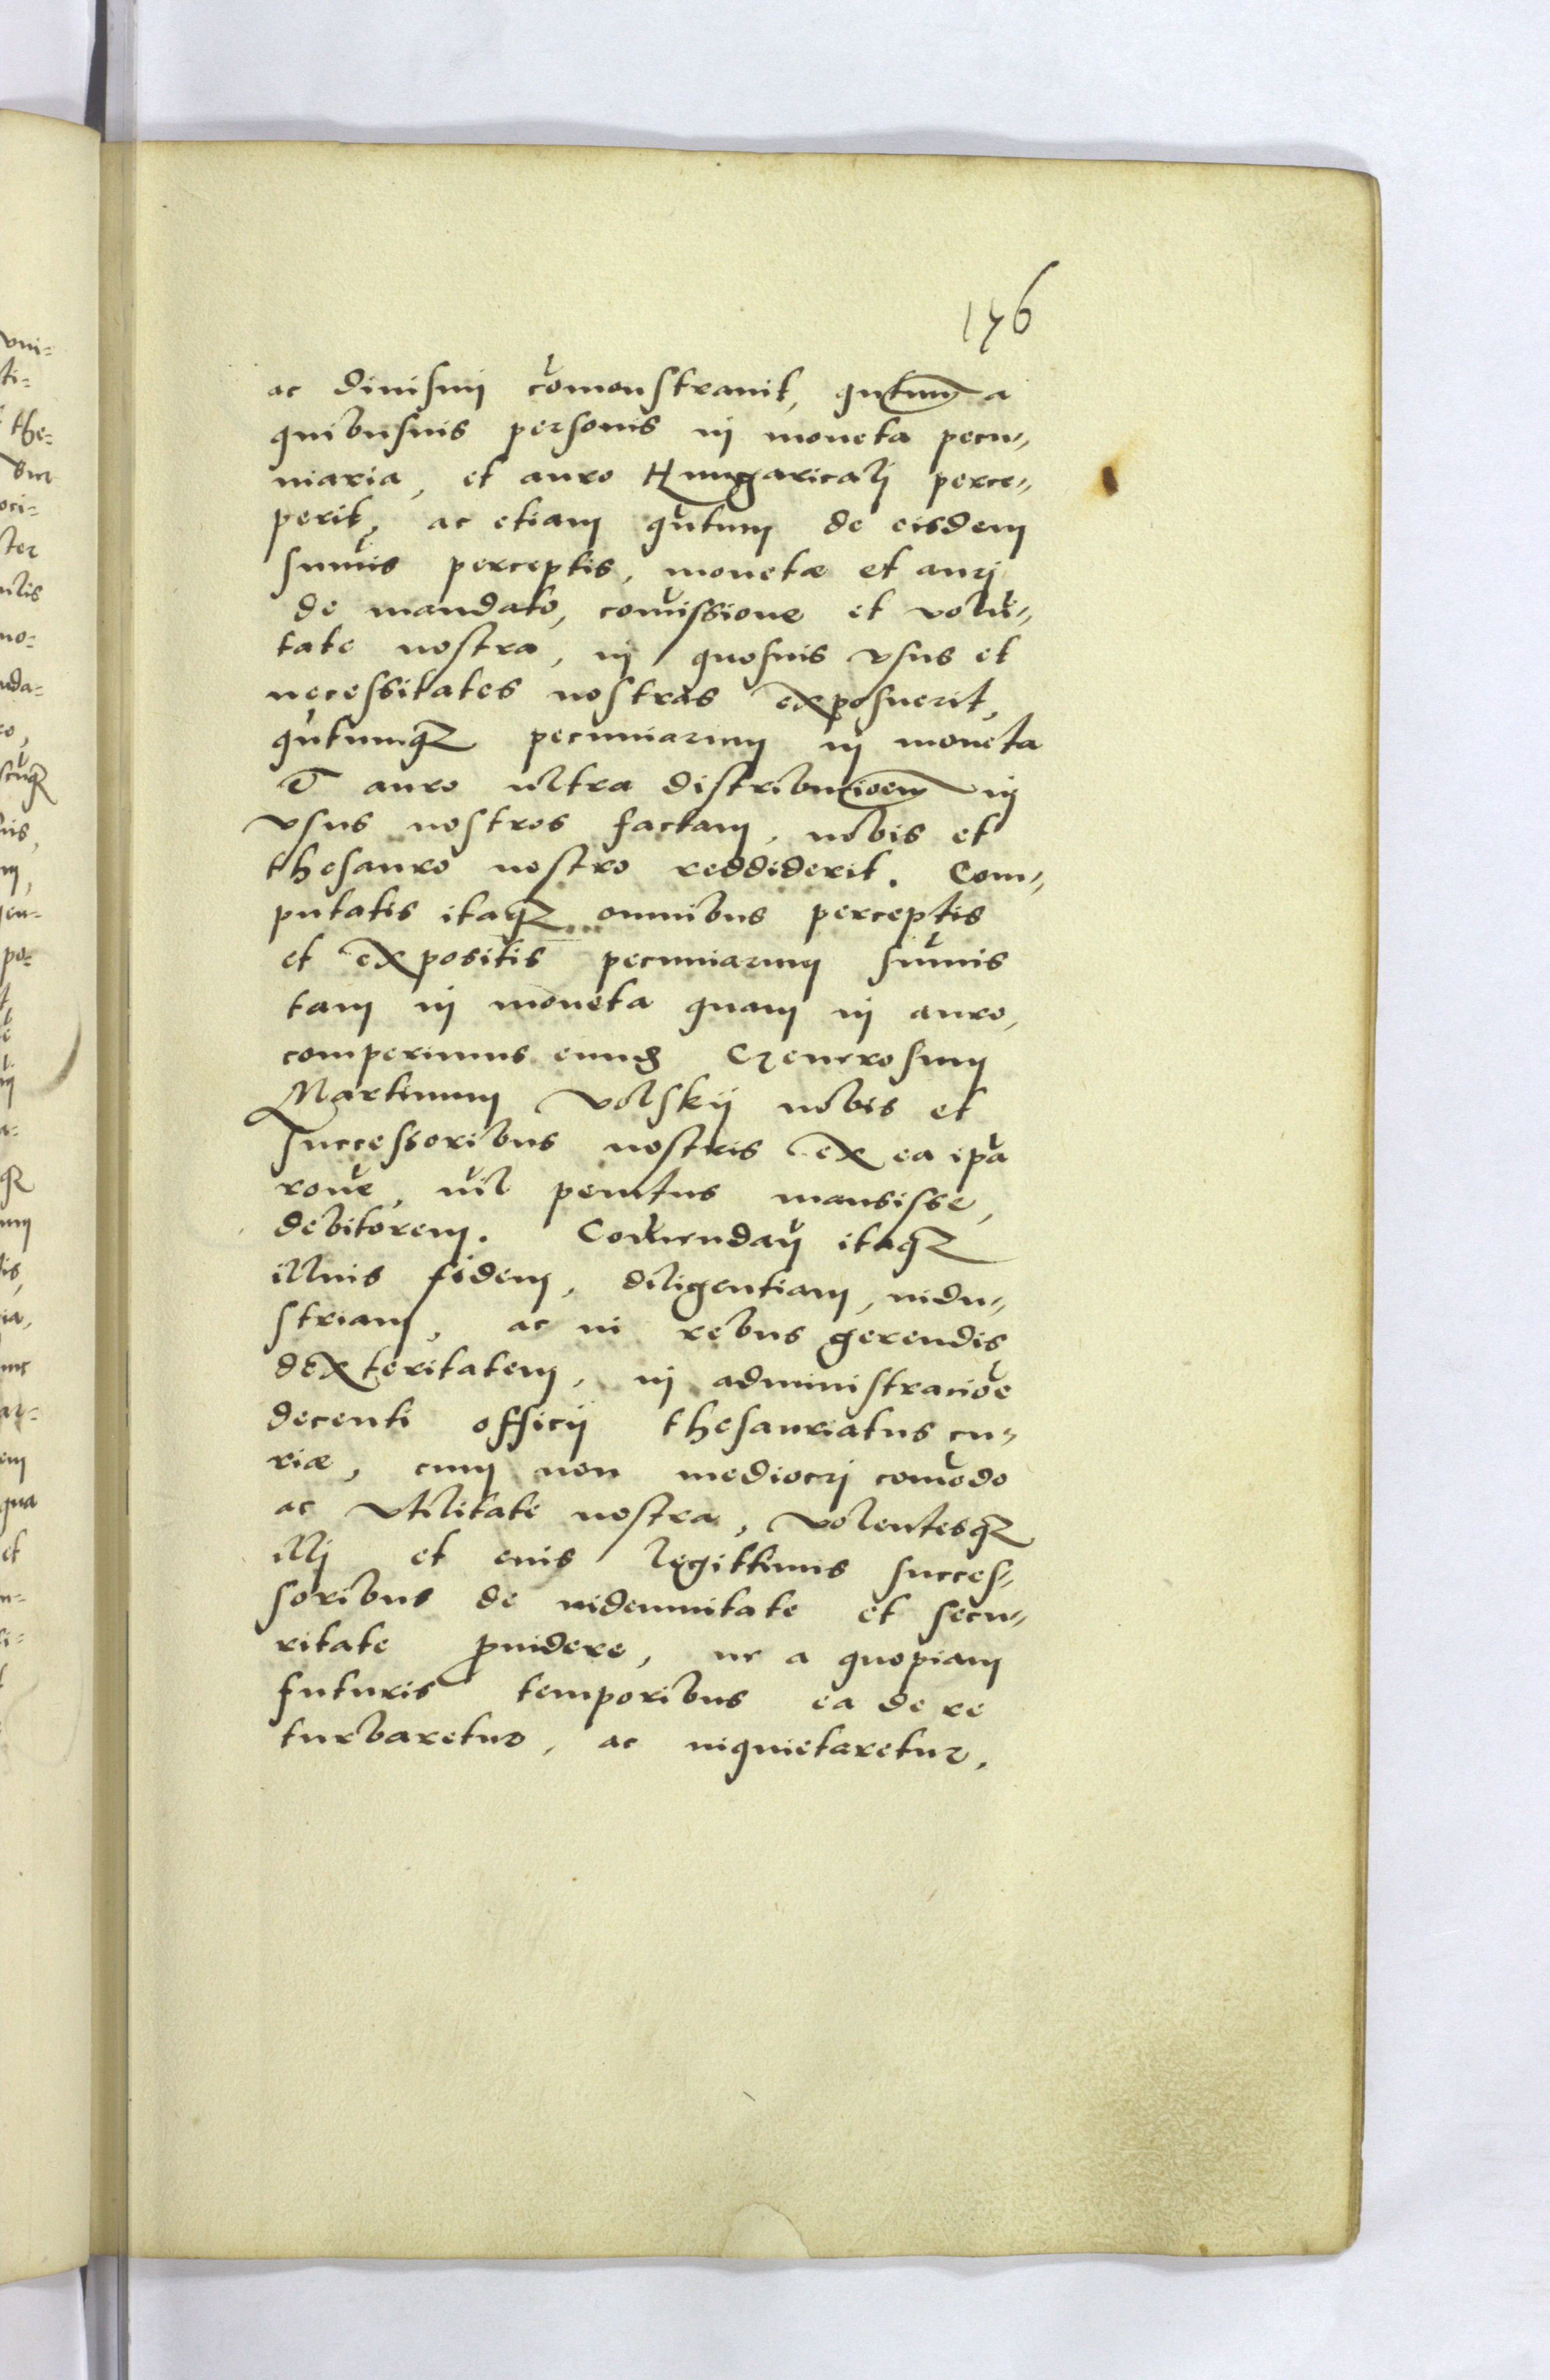 176
ac diuisim cōmonstrauit, qntum a
quibusuis personis in moneta pecu-
niaria, et auro Hungaricali perce-
perit, ac etiam qntum de eisdem
sum̄is perceptis, monetæ et auri
de mandato, com̄issione et volū-
tate nostra, in quosuis vsus et
necessitates nostras exposuerit,
qntumq3 pecuniarum in moneta
et auro ultra distributioem in
vsus nostros factam, nobis et
thesauro nostro reddiderit. Com-
putatis itaq3 omnibus perceptis
et expositis pecuniarum sum̄is
tam in moneta quam in auro,
comperimus eund Generosum
Martinum Volskij nobis et
successoribus nostris ex ea ip̄a
rōne, nil penitus mansisse,
debitorem. Com̄endan itaq3
illius fidem, diligentiam, indu-
striam, ac in rebus gerendis
dexteritatem, in administraciōe
decenti officij thesauriatus cu-
riæ, cum non mediocri com̄odo
ac vtilitate nostra, volentesq3
illi et eius legittimis succes-
soribus de indemnitate et secu-
ritate ꝓuidere, ne a quopiam
futuris temporibus ea de re
turbaretur, ac inquietaretur,
vni-
ti-
the-